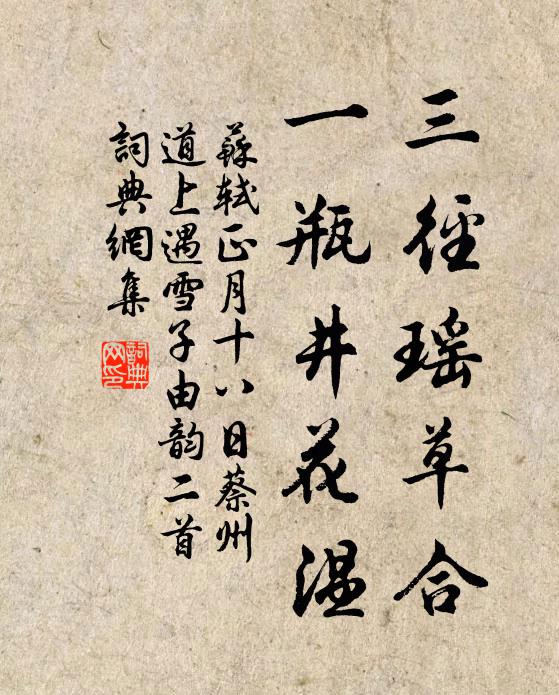 三徑瑶草合
一瓶井花温
蘇軾正月十八日蔡州
道上遇雪子由韵二首
詞典網集
詞典
网印